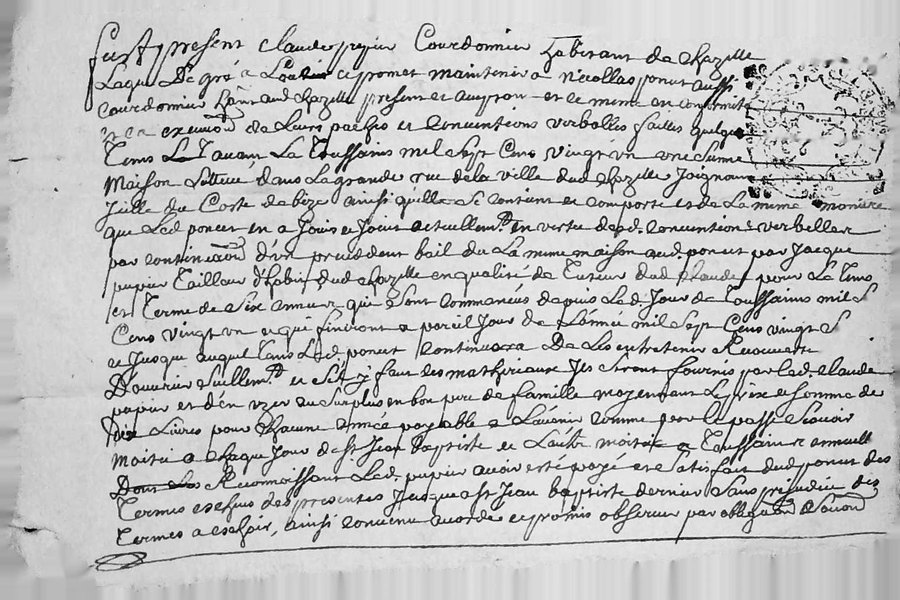 fust present claude pepin Courdonnier habitant de chazelle
Lequel De gré a Loué et promet maintenir a nicollas poncet aussi
Courdonnier habitant aud chazelle present et acceptant et ce meme en conformité
et en execuõn de Leurs pachos et Conventions verballes faittes quelque
Tems Lo Tavant La Toussains mil Sept Cens vingt un une Sienne
Maison Scittuée dans La grande rue de la ville dud chazelle Joignant
de Coste de bize ainsi qu'elle Se Contient et comporte et de La meme maniere
que Led. poncet en a Jouis et Jouit actuellemt. en vertu desd. Conventions verballes
par continuaõn d'un precedent bail de La meme maison aud. poncet par Jacque
pepin Tailleur d'habis dud chazelle en qualité de Tuteur dud Claude pour Le Tems
et Terme de Six années qui Sont Commancés depuis Led. Jour de Toussains mil S
Cens vingt un et qui finiront a pareil Jour de L'année mil Sept Cens vingt S
et Jusque auquel Tems Led. poncet Continuera De Les entretenir Recouverte
Douvrier Seullemt. et S'il y faut des mathériaux Ils Seront fournis par led. claude
pepin et d'en uzer au Surplus en bon pere de famille moyennant Le prix et Somme de
dix Livres pour chacune année payable a L'avenir Comme par le passé Scavoir
Moitié a chaque Jour de St Jean Baptiste et L'autre moitié a Toussains annuell
Dont Les Reconnoissant Led. pepin avoir esté payé et Satisfait dud poncet des
Termes echus des presentes Jusqua St Jean baptiste dernier Sans prejudice des
Termes a echoir, ainsi Convenu accordé et promis observer par obligaõn